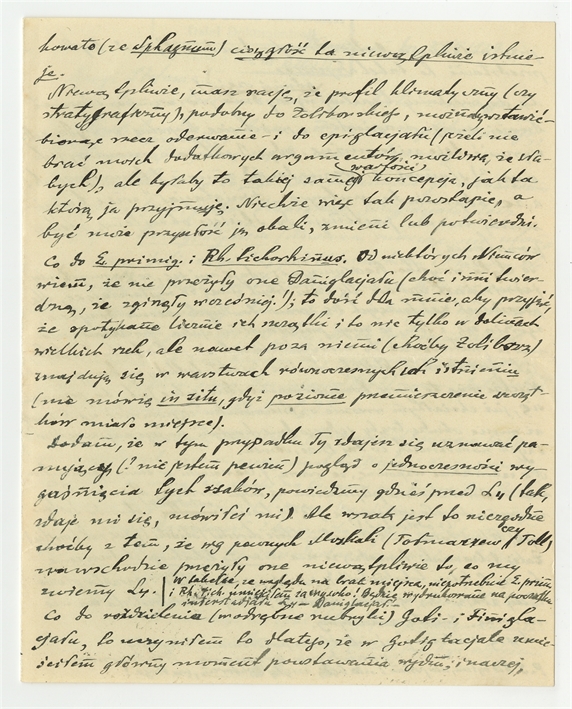 kowato (ze Sphagnum) ciągłość ta niewątpliwie istnie-
je.
Niewątpliwie, masz rację, że profil klimatyczny (czy
stratygraficzny), podobny do Żoliborskiego, można wstawić
biorąc rzecz oderwanie - i do epiglacjału (jeżeli nie
brać moich dodatkowych argumentów, możliwa, że sła-
bych), ale byłaby to takiej samej wartości koncepcja, jak ta
którą ja przyjmuję. Niechże więc tak pozostaje, a
być może przyszłość ją obali, zmieni lub potwierdzi.
Co do E. primig. i Rh. tichorhinus. Od niektórych Niemców
wiem, że nie przeżyły one Daniglacjału (choć inni twier-
dzą, że zginęły wcześniej!); to dość dla mnie, aby przyjąć,
że spotykane licznie ich szczątki i to nie tylko w dolinach
wielkich rzek, ale nawet poza niemi (choćby Żoliborz)
znajdują się w warstwach równoczesnych ich istnieniu
(nie mówię in situ, gdyż poziome przemieszczenie szcząt-
ków miało miejsce).
Dodam, że w tym przypadku Ty zdajesz się uznawać pa-
nujący (? nie jestem pewien) pogląd o jednoczesności wy-
gaśnięcia tych ssaków, powiedzmy gdzieś przed L4 (tak,
zdaje mi się, mówiłeś mi). Ale wszak jest to niezgodne
choćby z tem, że wg pewnych Moskali (Tołmaczew czy Toll)
na wschodzie przeżyły one niewątpliwie to, co my
zwiemy L4. W tabelce, ze względu na brak miejsca, niepotrzebnie E. prim.
i Rh. tich. umieściłem za wysoko! Będzie wydrukowane na początku
interstadjału - Daniglacjał.
Co do rozdzielenia (w odrębne rubryki) Goti- i Finigla-
cjału, to uczyniłem to dlatego, że w Gotiglacjale umie-
ściłem główny moment powstawania wydm; inaczej,